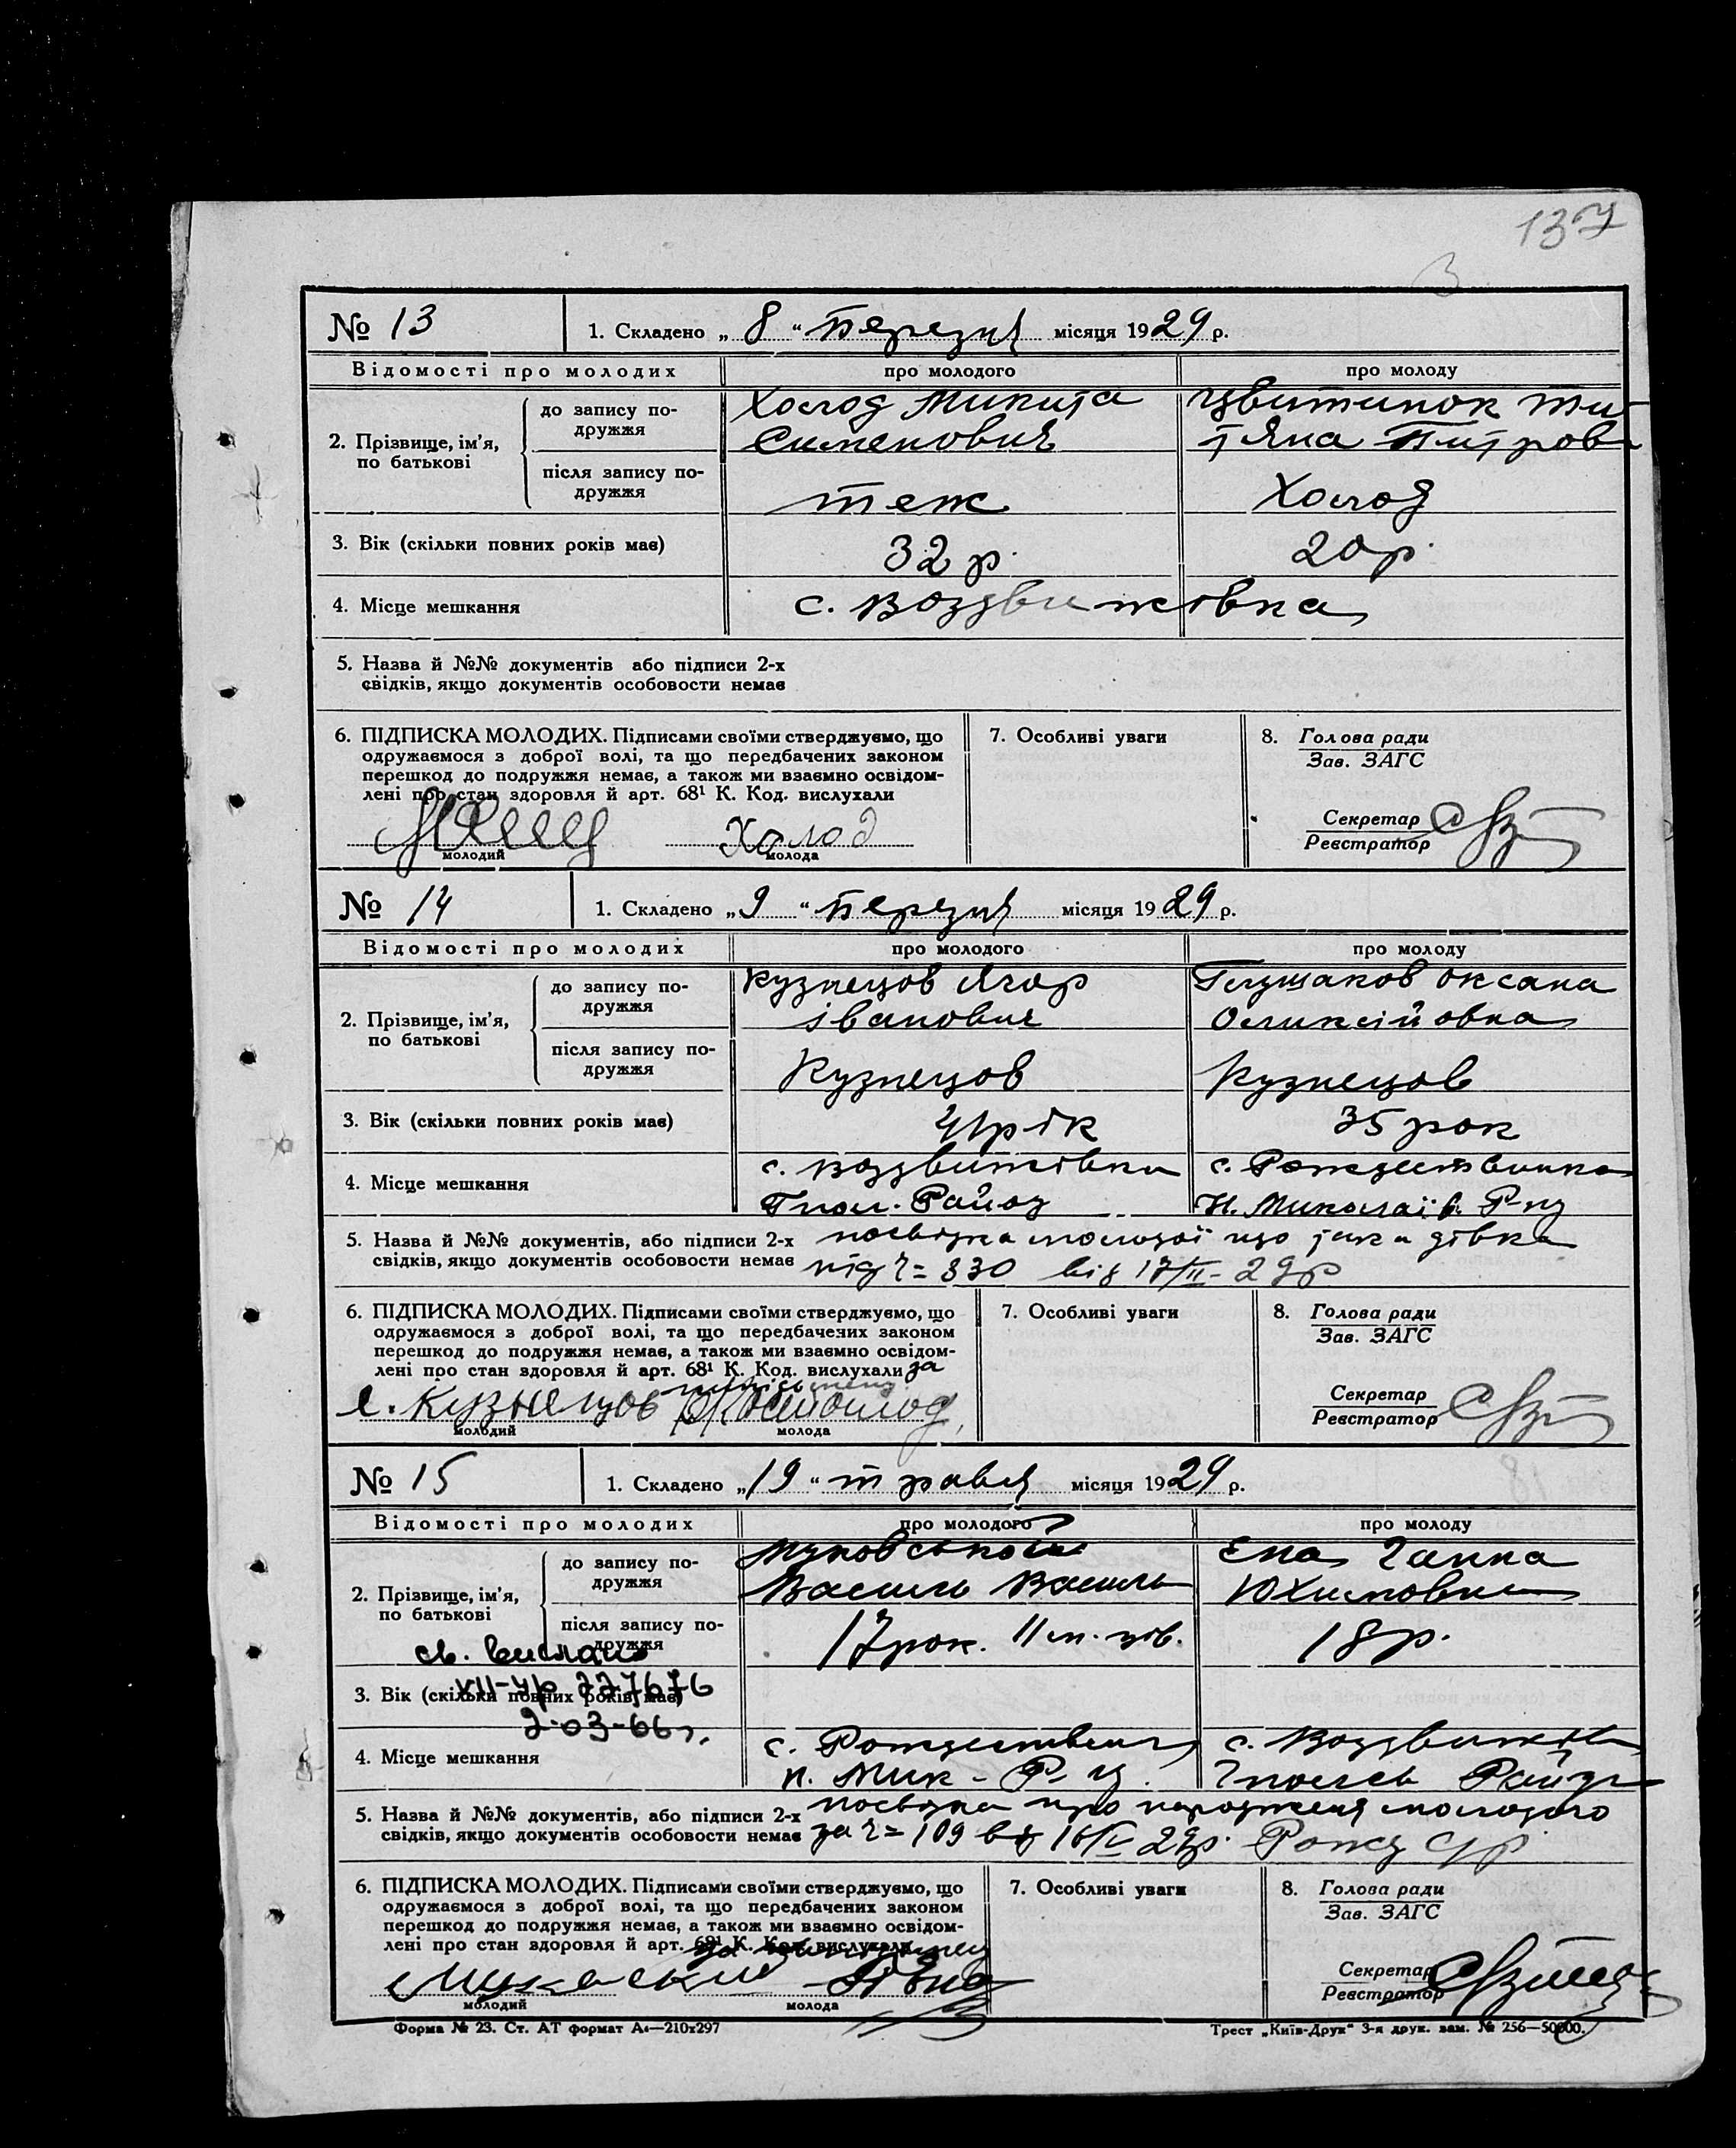 137
№ 13 1. Складено „ 8 “ березня місяця 1929 р.
Відомості про молодих про молодого про молоду
2. Прізвище, ім’я, по батькові
до запису по-
дружжя
Холод Микита
Сименович
Цвитинок Ти-
тяна Питров
після запису по-
дружжя
теж
Холод
3. Вік (скільки повних років має) 32 р. 20 р.
4. Місце мешкання с. Воздвижівка
5. Назва й №№ документів або підписи 2-х
свідків, якщо документів особовости немає
6. ПІДПИСКА МОЛОДИХ. Підписами своїми стверджуємо, що
одружаємося з доброї волі, та що передбачених законом
перешкод до подружжя немає, а також ми взаємно освідом-
лені про стан здоровля й арт. 68¹ К. Код. вислухали
Холод
молодий молода
7. Особливі уваги
8. Голова ради
Зав. ЗАГС
Секретар
Реєстратор
№ 14 1. Складено „ 9 “ березня місяця 1929 р.
Відомості про молодих про молодого про молоду
2. Прізвище, ім’я,
по батькові
до запису по-
дружжя
Кузнецов Ягор
Іванович
Глущаков Оксана
Оликсійовна
після запису по-
дружжя
Кузнецов
Кузнецов
3. Вік (скільки повних років має) 41 рік 35 рок
4. Місце мешкання
с. Воздвижівки
Гпол. Району
с. Рождественка
Н. Миколаїв. Р-ну
5. Назва й №№ документів, або підписи 2-х
свідків, якщо документів особовости немає
посвідка молодої що дівка
під ч= 330 від 17/II-29р
6. ПІДПИСКА МОЛОДИХ. Підписами своїми стверджуємо, що
одружаємося з доброї волі, та що передбачених законом
перешкод до подружжя немає, а також ми взаємно освідом-
лені про стан здоровля й арт. 68¹ К. Код. вислухали за
е. Кузнецов
молодий молода
7. Особливі уваги
8. Голова ради
Зав. ЗАГС
Секретар
Реєстратор
№ 15 1. Складено „ 19 “ травня місяця 1929 р.
Відомості про молодих про молодого про молоду
2. Прізвище, ім’я,
по батькові
до запису по-
дружжя
Василь Василь
Єна Ганна
Юхимовна
після запису по-
дружжя
17 рок. 11 м. 18 р.
св. выслано
VII-УР 227676
2-03-66 г.
3. Вік (скільки повних років має)
4. Місце мешкання
с. Рождественк
Н. Мик - Р-н
с. Воздвижів
Гполсь Району
5. Назва й №№ документів, або підписи 2-х
свідків, якщо документів особовости немає
посвідка про народженя молодого
за ч= 109 від 16/ 29р. Рожд с/р
6. ПІДПИСКА МОЛОДИХ. Підписами своїми стверджуємо, що
одружаємося з доброї волі, та що передбачених законом
перешкод до подружжя немає, а також ми взаємно освідом-
лені про стан здоровля й арт. 68¹ К. Код. вислухали
молодий молода
7. Особливі уваги
8. Голова ради
Зав. ЗАГС
Секретар
Реєстратор
Форма № 23. Ст. АТ формат А₄—210х297
Трест „Київ-Друк“ 3-я друк. зам. № 256—50000.